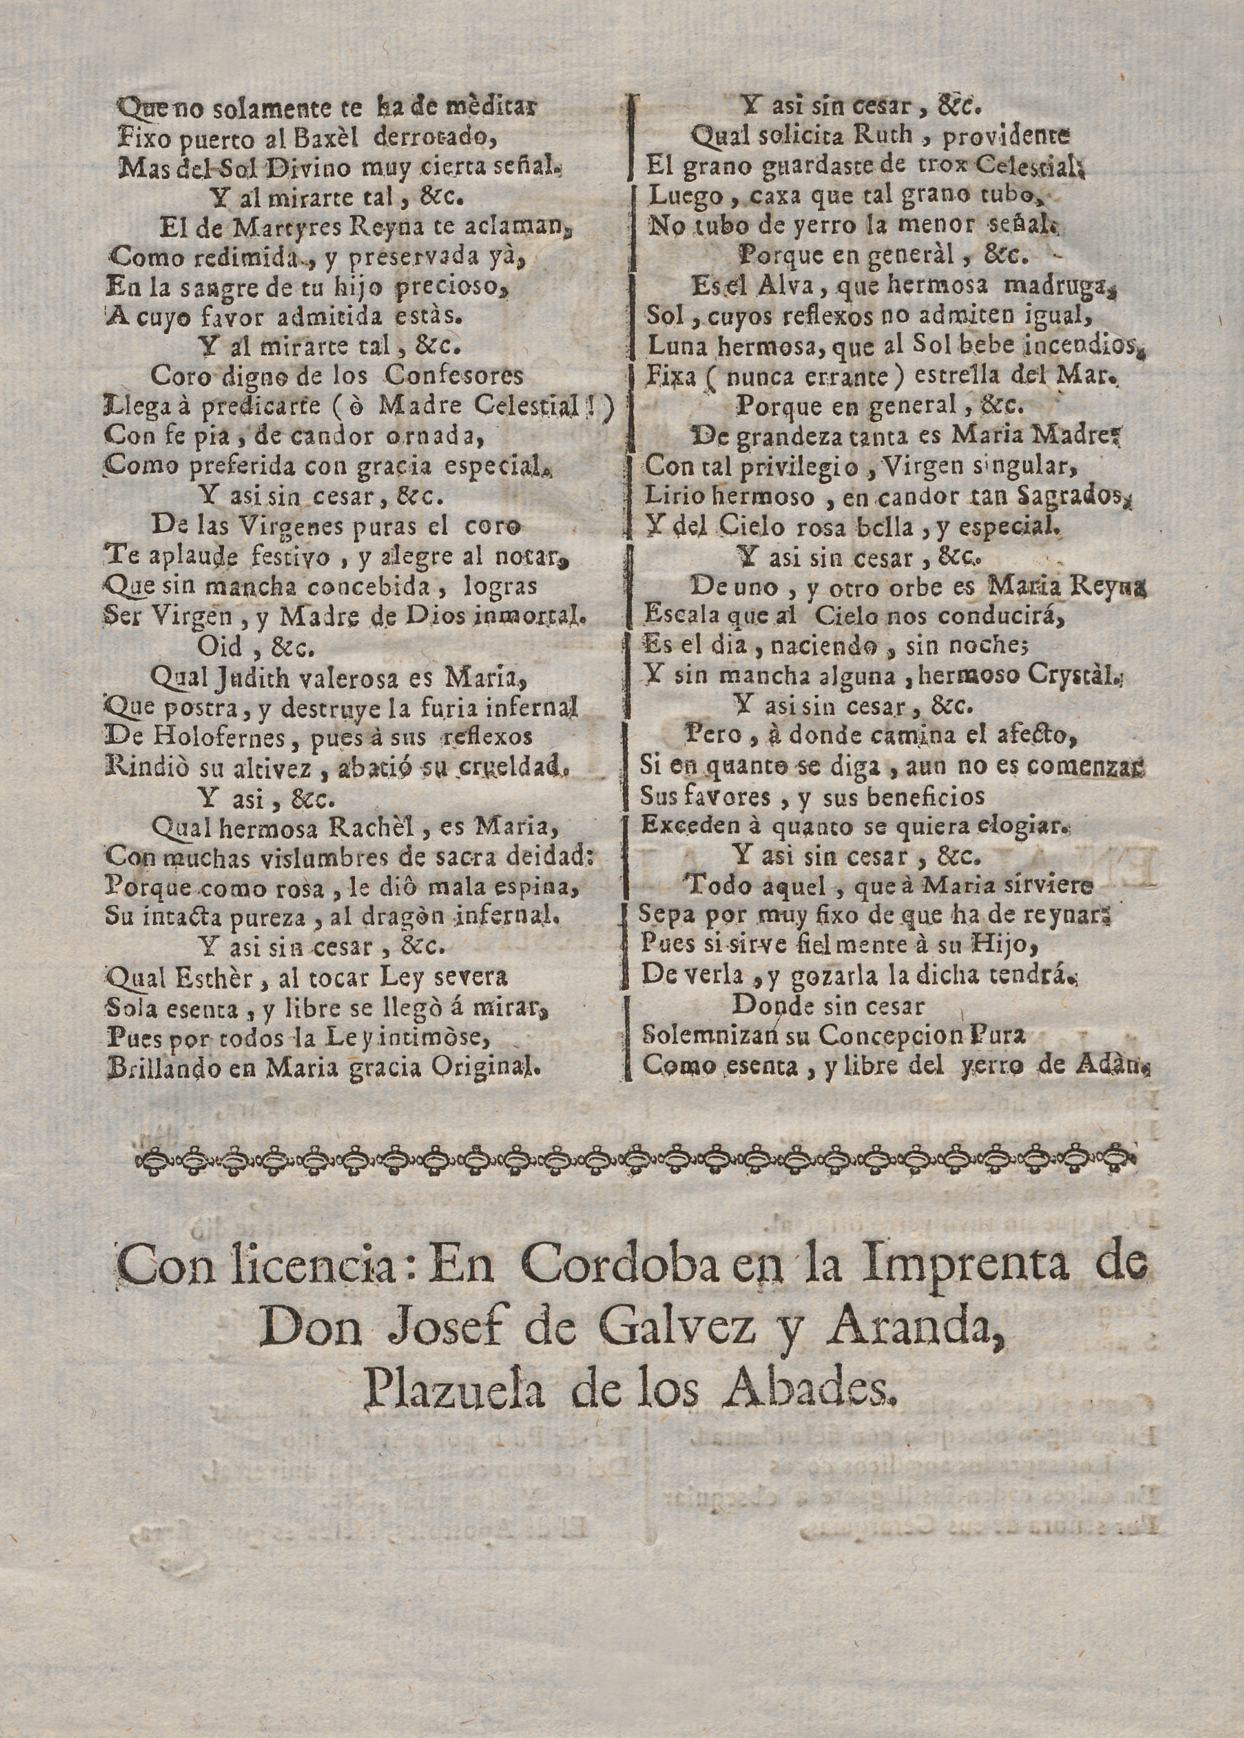 Que no solamente te ha de mèditar
Fixo puerto al Baxèl derrotado,
Mas del Sol Divino muy cierta señal.
Y al mirarte tal, &c.
El de Martyres Reyna te aclaman,
Como redimida, y preservada yà,
En la sangre de tu hijo precioso,
A cuyo favor admitida estàs.
Y al mirarte tal, &c.
Coro digno de los Confesores
Llega à predicarte (ò Madre Celestial!)
Con fe pia, de candor ornada,
Como preferida con gracia especial.
Y asi sin cesar, &c.
De las Virgenes puras el coro
Te aplaude festivo, y alegre al notar,
Que sin mancha concebida, logras
Ser Virgen, y Madre de Dios inmortal.
Oid, &c.
Qual Judith valerosa es Maria,
Que postra, y destruye la furia infernal
De Holofernes, pues à sus reflexos
Rindiò su altivez, abatió su crueldad.
Y asi, &c.
Qual hermosa Rachèl, es Maria,
Con muchas vislumbres de sacra deidad:
Porque como rosa, le diô mala espina,
Su intacta pureza, al dragòn infernal.
Y asi sin cesar, &c.
Qual Esthèr, al tocar Ley severa
Sola esenta, y libre se llegò á mirar,
Pues por todos la Ley intimòse,
Brillando en Maria gracia Original.
Y asi sin cesar, &c.
Qual solicita Ruth, providente
El grano guardaste de trox Celestial;
Luego, caxa que tal grano tubo,
No tubo de yerro la menor señal.
Porque en generàl, &c.
Es el Alva, que hermosa madruga,
Sol, cuyos reflexos no admiten igual,
Luna hermosa, que al Sol bebe incendios,
Fixa (nunca errante) estrella del Mar.
Porque en general, &c.
De grandeza tanta es Maria Madre;
Con tal privilegio, Virgen singular,
Lirio hermoso, en candor tan Sagrados,
Y del Cielo rosa bella, y especial.
Y asi sin cesar, &c.
De uno, y otro orbe es Maria Reyna
Escala que al Cielo nos conducirá,
Es el dia, naciendo, sin noche;
Y sin mancha alguna, hermoso Crystàl.
Y asi sin cesar, &c.
Pero, à donde camina el afecto,
Si en quanto se diga, aun no es comenzar
Sus favores, y sus beneficios
Exceden à quanto se quiera elogiar.
Y asi sin cesar, &c.
Todo aquel, que à Maria sirviere
Sepa por muy fixo de que ha de reynar;
Pues si sirve fielmente à su Hijo,
De verla, y gozarla la dicha tendrá.
Donde sin cesar
Solemnizan su Concepcion Pura
Como esenta, y libre del yerro de Adàn.
Con licencia: En Cordoba en la Imprenta de
Don Josef de Galvez y Aranda,
Plazuela de los Abades.